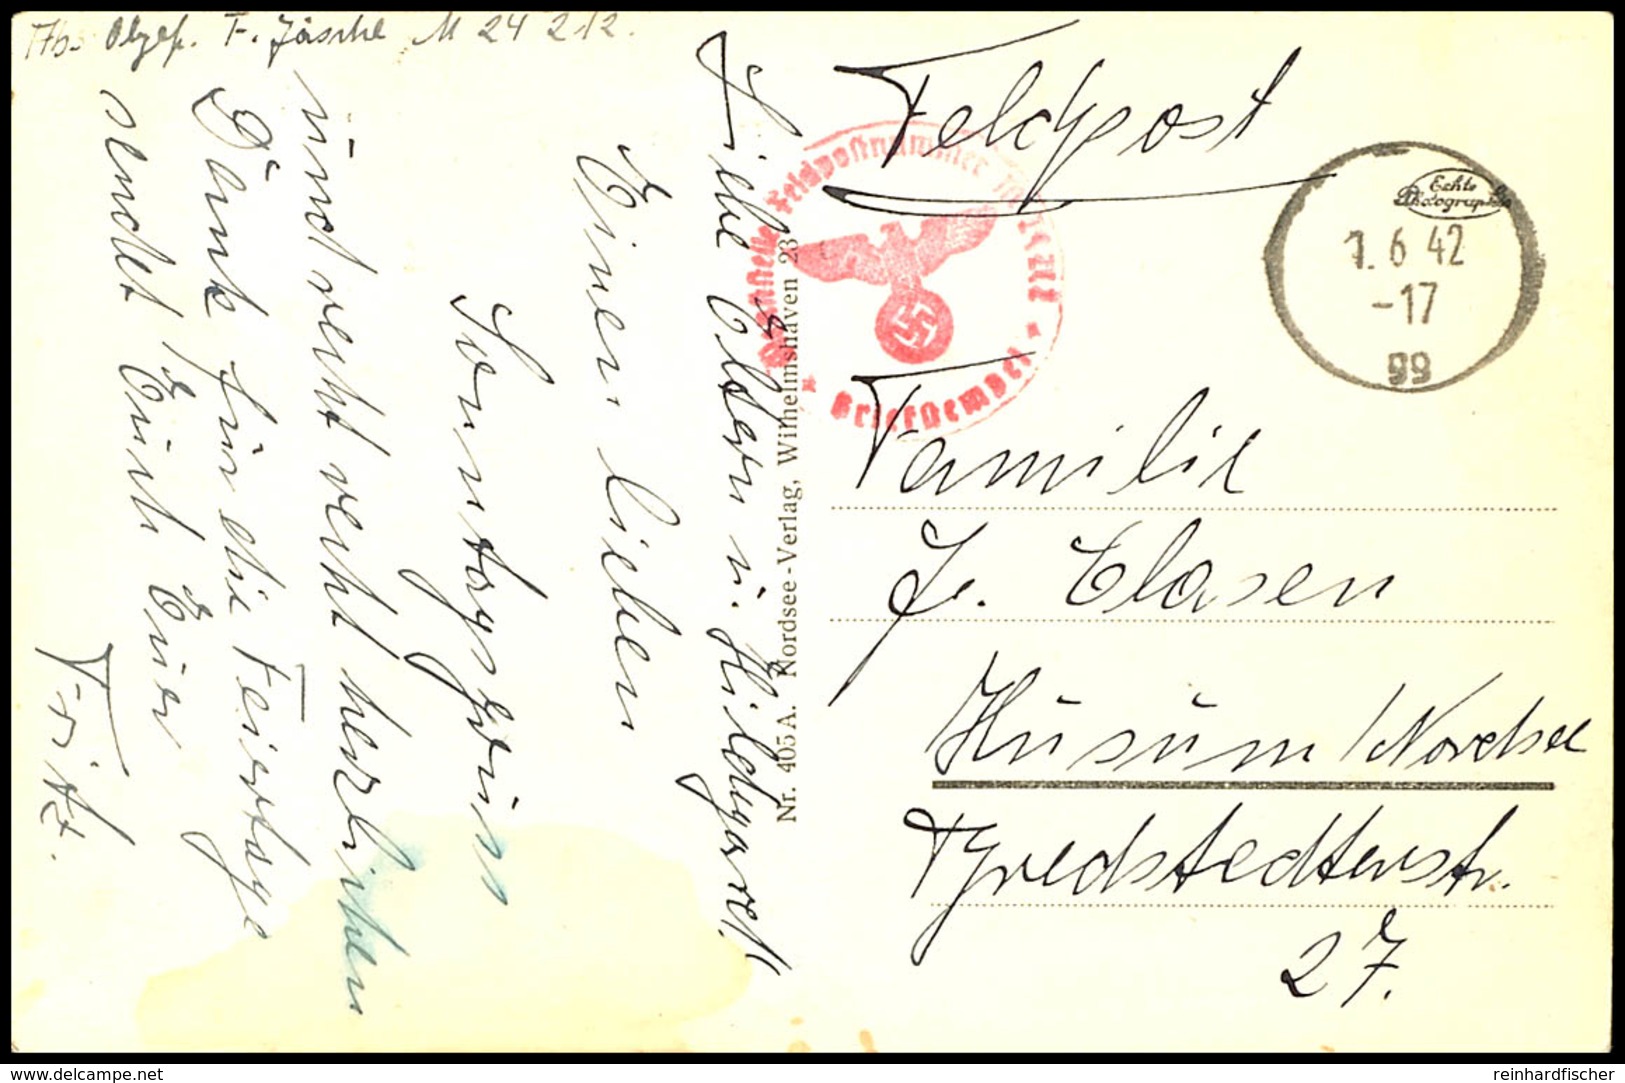 Abs. Obgef. F. Jäschke M 24 212.
Liebe Eltern u. Hildegard!
Einen lieben
Sonntagsgruss
und recht recht herzlichen
Dank für die Feiertage
sendet Euch Euer
Fritz.
Nr. 405 A. Nordsee-Verlag, Wilhelmshaven 23
Feldpost
Feldpostnummer
Briefstempel
Echte
Photographie
1.6 42
-17
99
Familie
J. Clasen
Husum/Nordsee
Bredstedterstr.
27.
www.delcampe.net
reinhardfischer